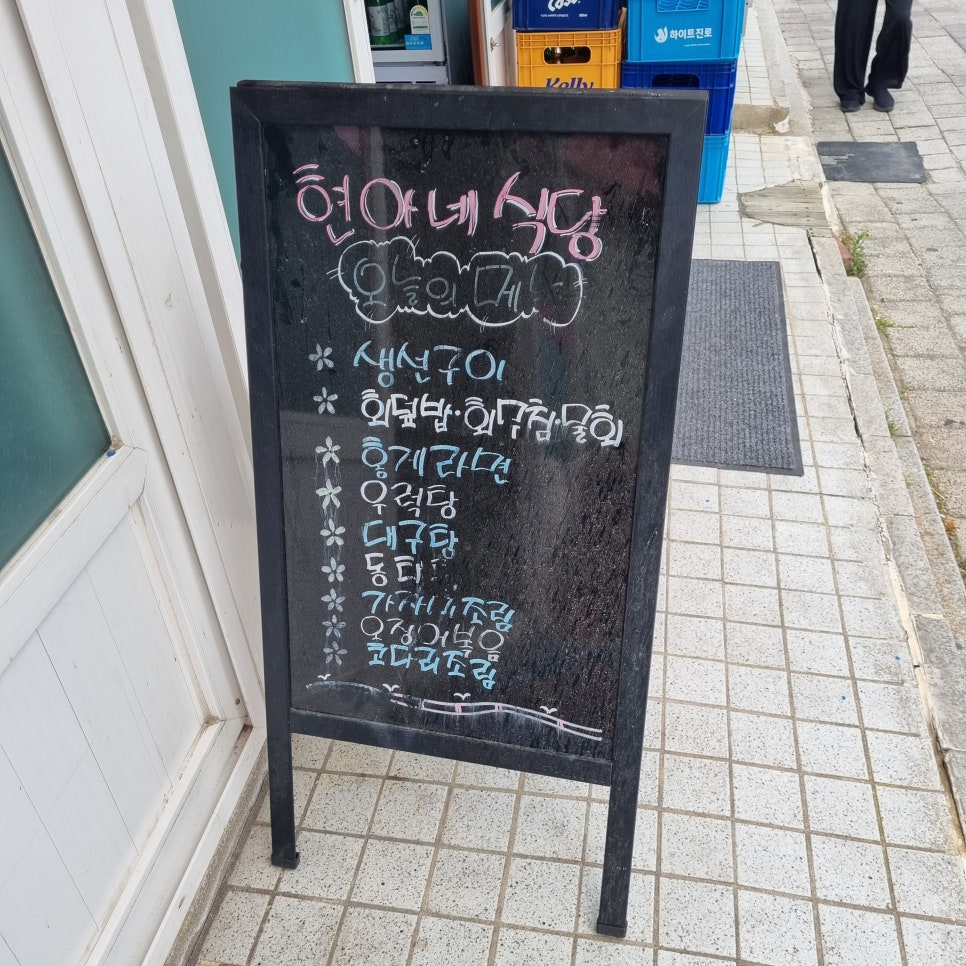 Cass
하이트진로
Kelly
현아네 식당
오늘의 메뉴
생선구이
회덮밥·회무침·물회
홍게라면
우럭탕
대구탕
동태
가자미조림
오징어볶음
코다리조림